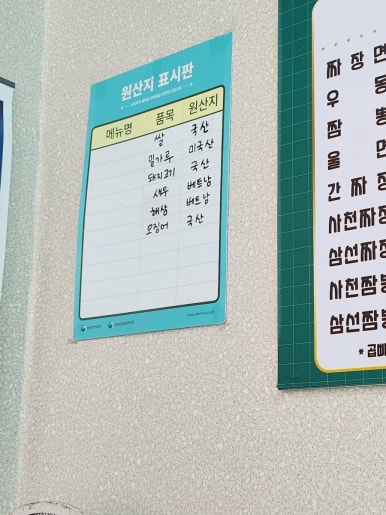 원산지 표시판
메뉴명 품목 원산지
쌀 국산
밀가루 미국산
돼지고기 국산
새우 베트남
해삼 베트남
오징어 국산
짜장면
우동
짬뽕
울면
간짜장
사천짜장
삼선짜장
사천짬뽕
삼선짬뽕
* 곱빼